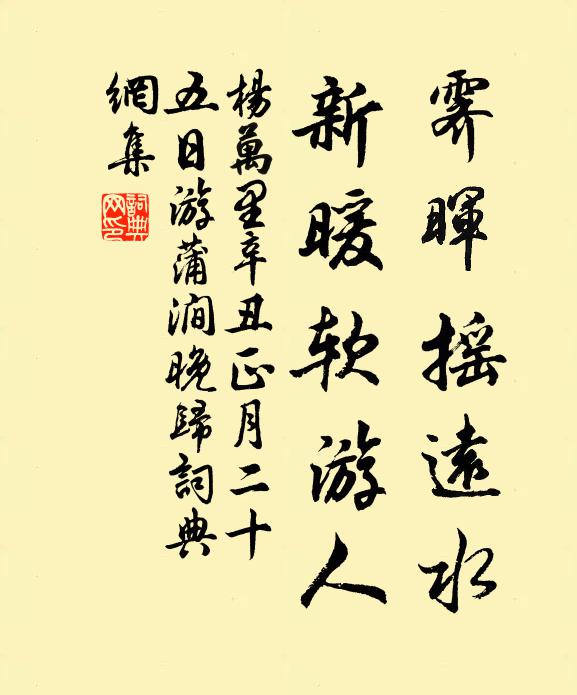 霽暉摇遠水
新暖软游人
楊萬里辛丑正月二十
五日游蒲澗晚歸詞典
網集
詞典
网印